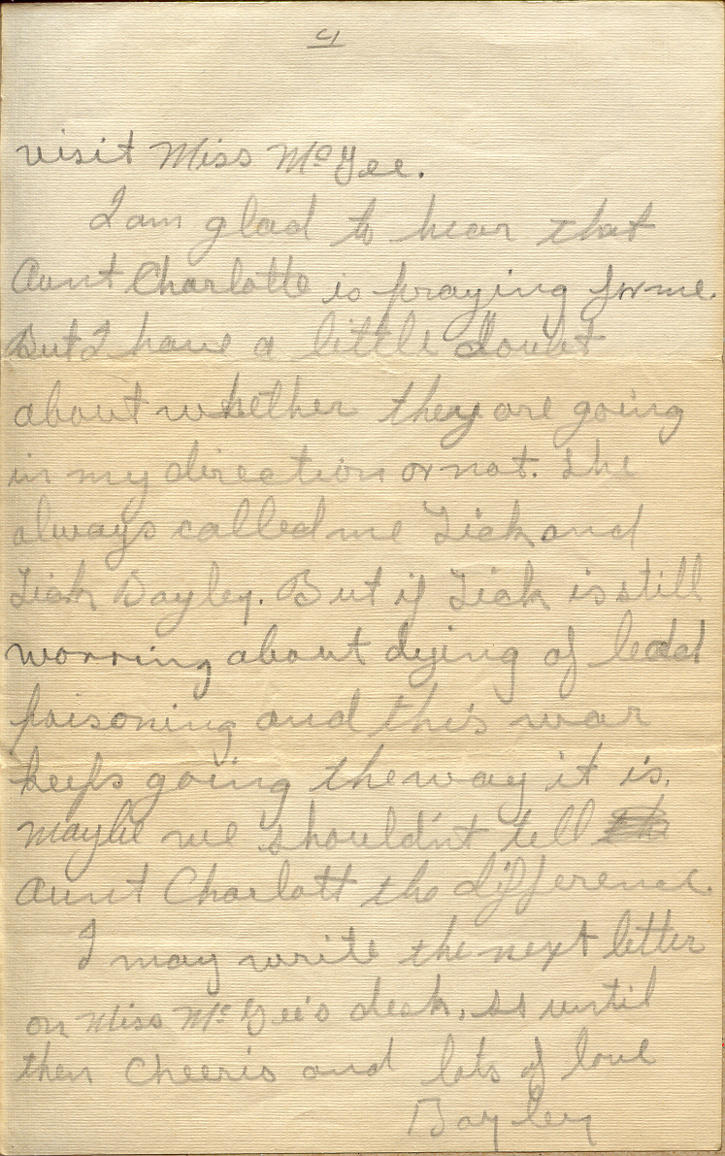 4
visit Miss McGee.
I am glad to hear that
Aunt Charlotte is praying for me.
But I have a little doubt
about whether they are going
in my direction or not. She
always called me Dick and
Dick Bayley. But if Dick is still
worring about dying of lead
poisoning and this war
keeps going the way it is,
maybe we shouldn't tell
Aunt Charlott the difference.
I may write the next letter
on Miss McGee's desk, so until
then cheerio and lots of love
Bayley